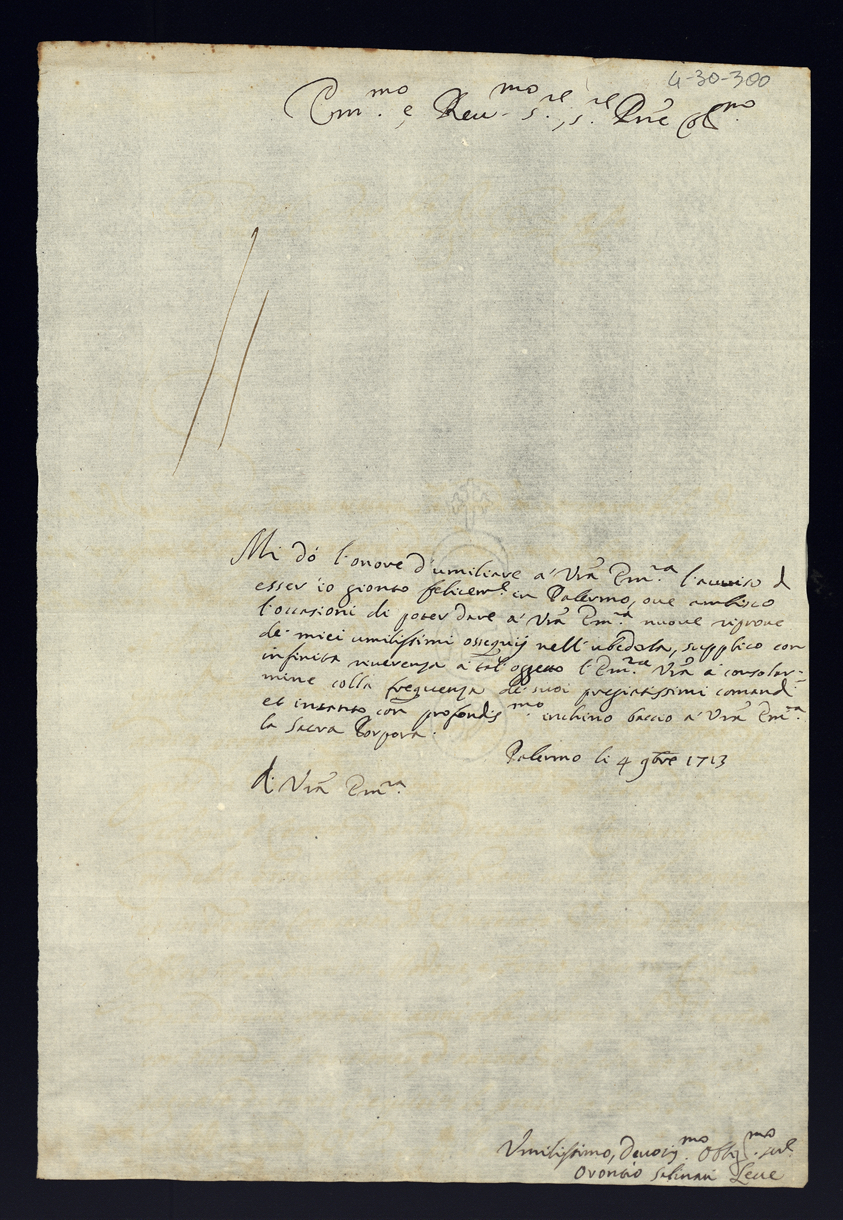 4-30-300
Em.mo e Reu.mo S.re, s.re Pñe Col.mo
Mi dó l'onore d'umiliare a' Vrã Em.ra l'auuiso d
esser io gionto felicem.e in Palermo, oue ambisco
l'occasioni di poter dare a' Vrã Em.ra nuoue riproue
de' miei umilissimi ossequij nell'ubidirla, supplico con
infinita riuerenza a tal oggetto l'Em.ra Vrã a consolar-
mine colla frequenza de' suoi pregiatissimi comandi
et intanto con profondis.mo inchino baccio a' Vrã Em.ra
la Sacra Porpora.
Palermo li 4 9bre 1713
di Vrã Em.ra
Vmilissimo, Deuotis.mo Obblig.mo ser.
Orontio